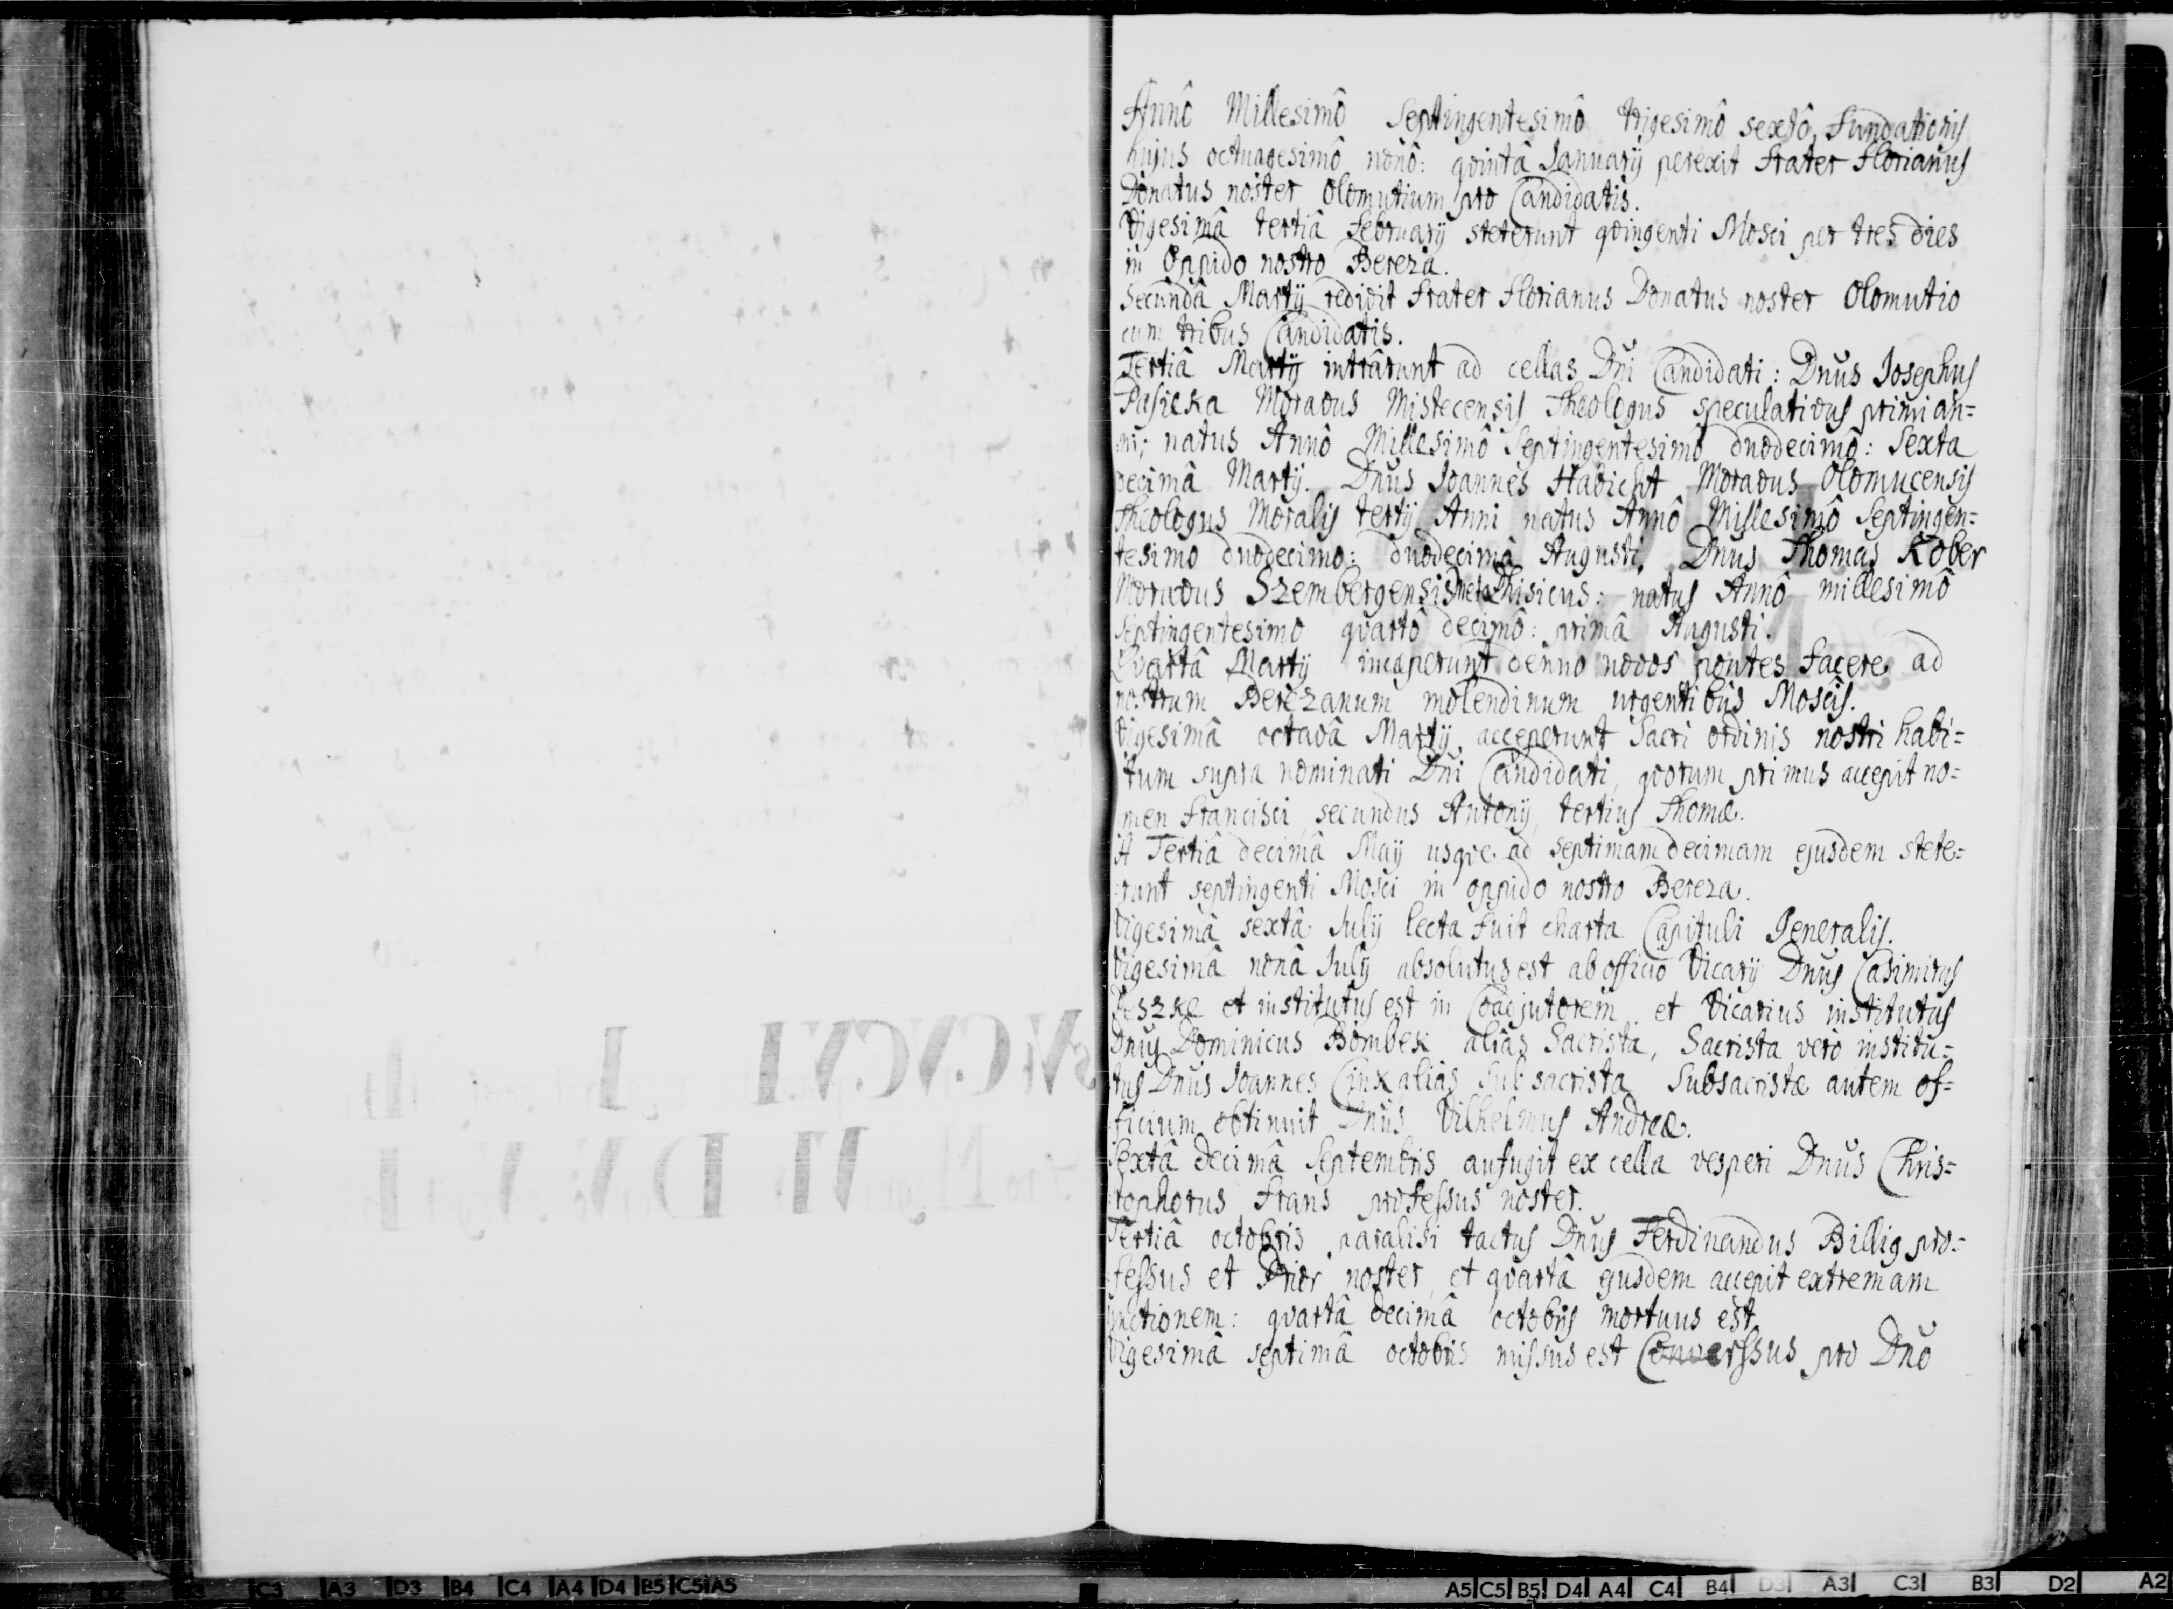 Annô Millesimô Septingentesimô trigesimô sextô, fundationis
hujus octuagesimô nonô: qvintâ Januarij perexit frater Florianus
Donatus noster Olomutium pro Candidatis.
Vigesimâ tertiâ February steterunt qvingenti Mosci per tres dies
in Oppido nostro Bereza.
Secundâ Martij redivit frater Florianus Donatus noster Olomutio
cum tribus Candidatis.
Tertiâ Martij intrârunt ad cellas Dni Candidati: Dnus Josephus
Pasieka Moravus Mistecensis Theologus speculativus primi an=
ni; natus Annô Millesimô Septingentesimô duodecimô: Sexta
decimâ Martij. Dnus Joannes Habicht Moravus Olomucensis
Theologus Moralis tertij Anni natus Annô Millesimô Septingen=
tesimo duodecimo: duodecimâ Augusti, Dnus Thomas Kober
Moravus Szembergensis Metaphisicus: natus Annô millesimô
Septingentesimo qvartô decimô: primâ Augusti.
Qvartâ Martij incæperunt denuo novos pontes facere ad
nostrum Berezanum molendinum urgentibus Moscis.
Vigesimâ octavâ Martij acceperunt Sacri ordinis nostri habi=
tum supra nominati Dni Candidati, qvorum primus accepit no=
men Francisci, secundus Antonij, tertius Thomæ.
A Tertiâ decimâ Maij usqve ad septimam decimam ejusdem stete=
runt septingenti Mosci in oppido nostro Bereza.
Vigesimâ sextâ Julij lecta fuit charta Capituli Generalis.
Vigesimâ nonâ Julij absolutus est ab officio Vicarij Dnus Casimirus
et institutus est in Coadjutorem et Vicarius institutus
Dnus Dominicus Bombek aliâs Sacrista, Sacrista verò institu=
tus Dnus Joannes Cinx aliâs subsacrista Subsacristæ autem of=
ficium obtinuit Dnus Vilhelmus Andreæ.
Sextâ decimâ Septembris aufugit ex cella vesperi Dnus Chris=
tophorus Frans professus noster.
Tertiâ octobris paralisi tactus Dnus Ferdinandus Billig pro=
fessus et Prior noster, et qvartâ ejusdem accepit extremam
unctionem: qvartâ decimâ octobris mortuus est.
Vigesimâ septimâ octobris missus est Converssus pro Dno
C3 A3 D3 B4 C4 A4 D4 B5 C5 A5
A5 C5 B5 D4 A4 C4 B4 D3 A3 C3 B3 D2 A2